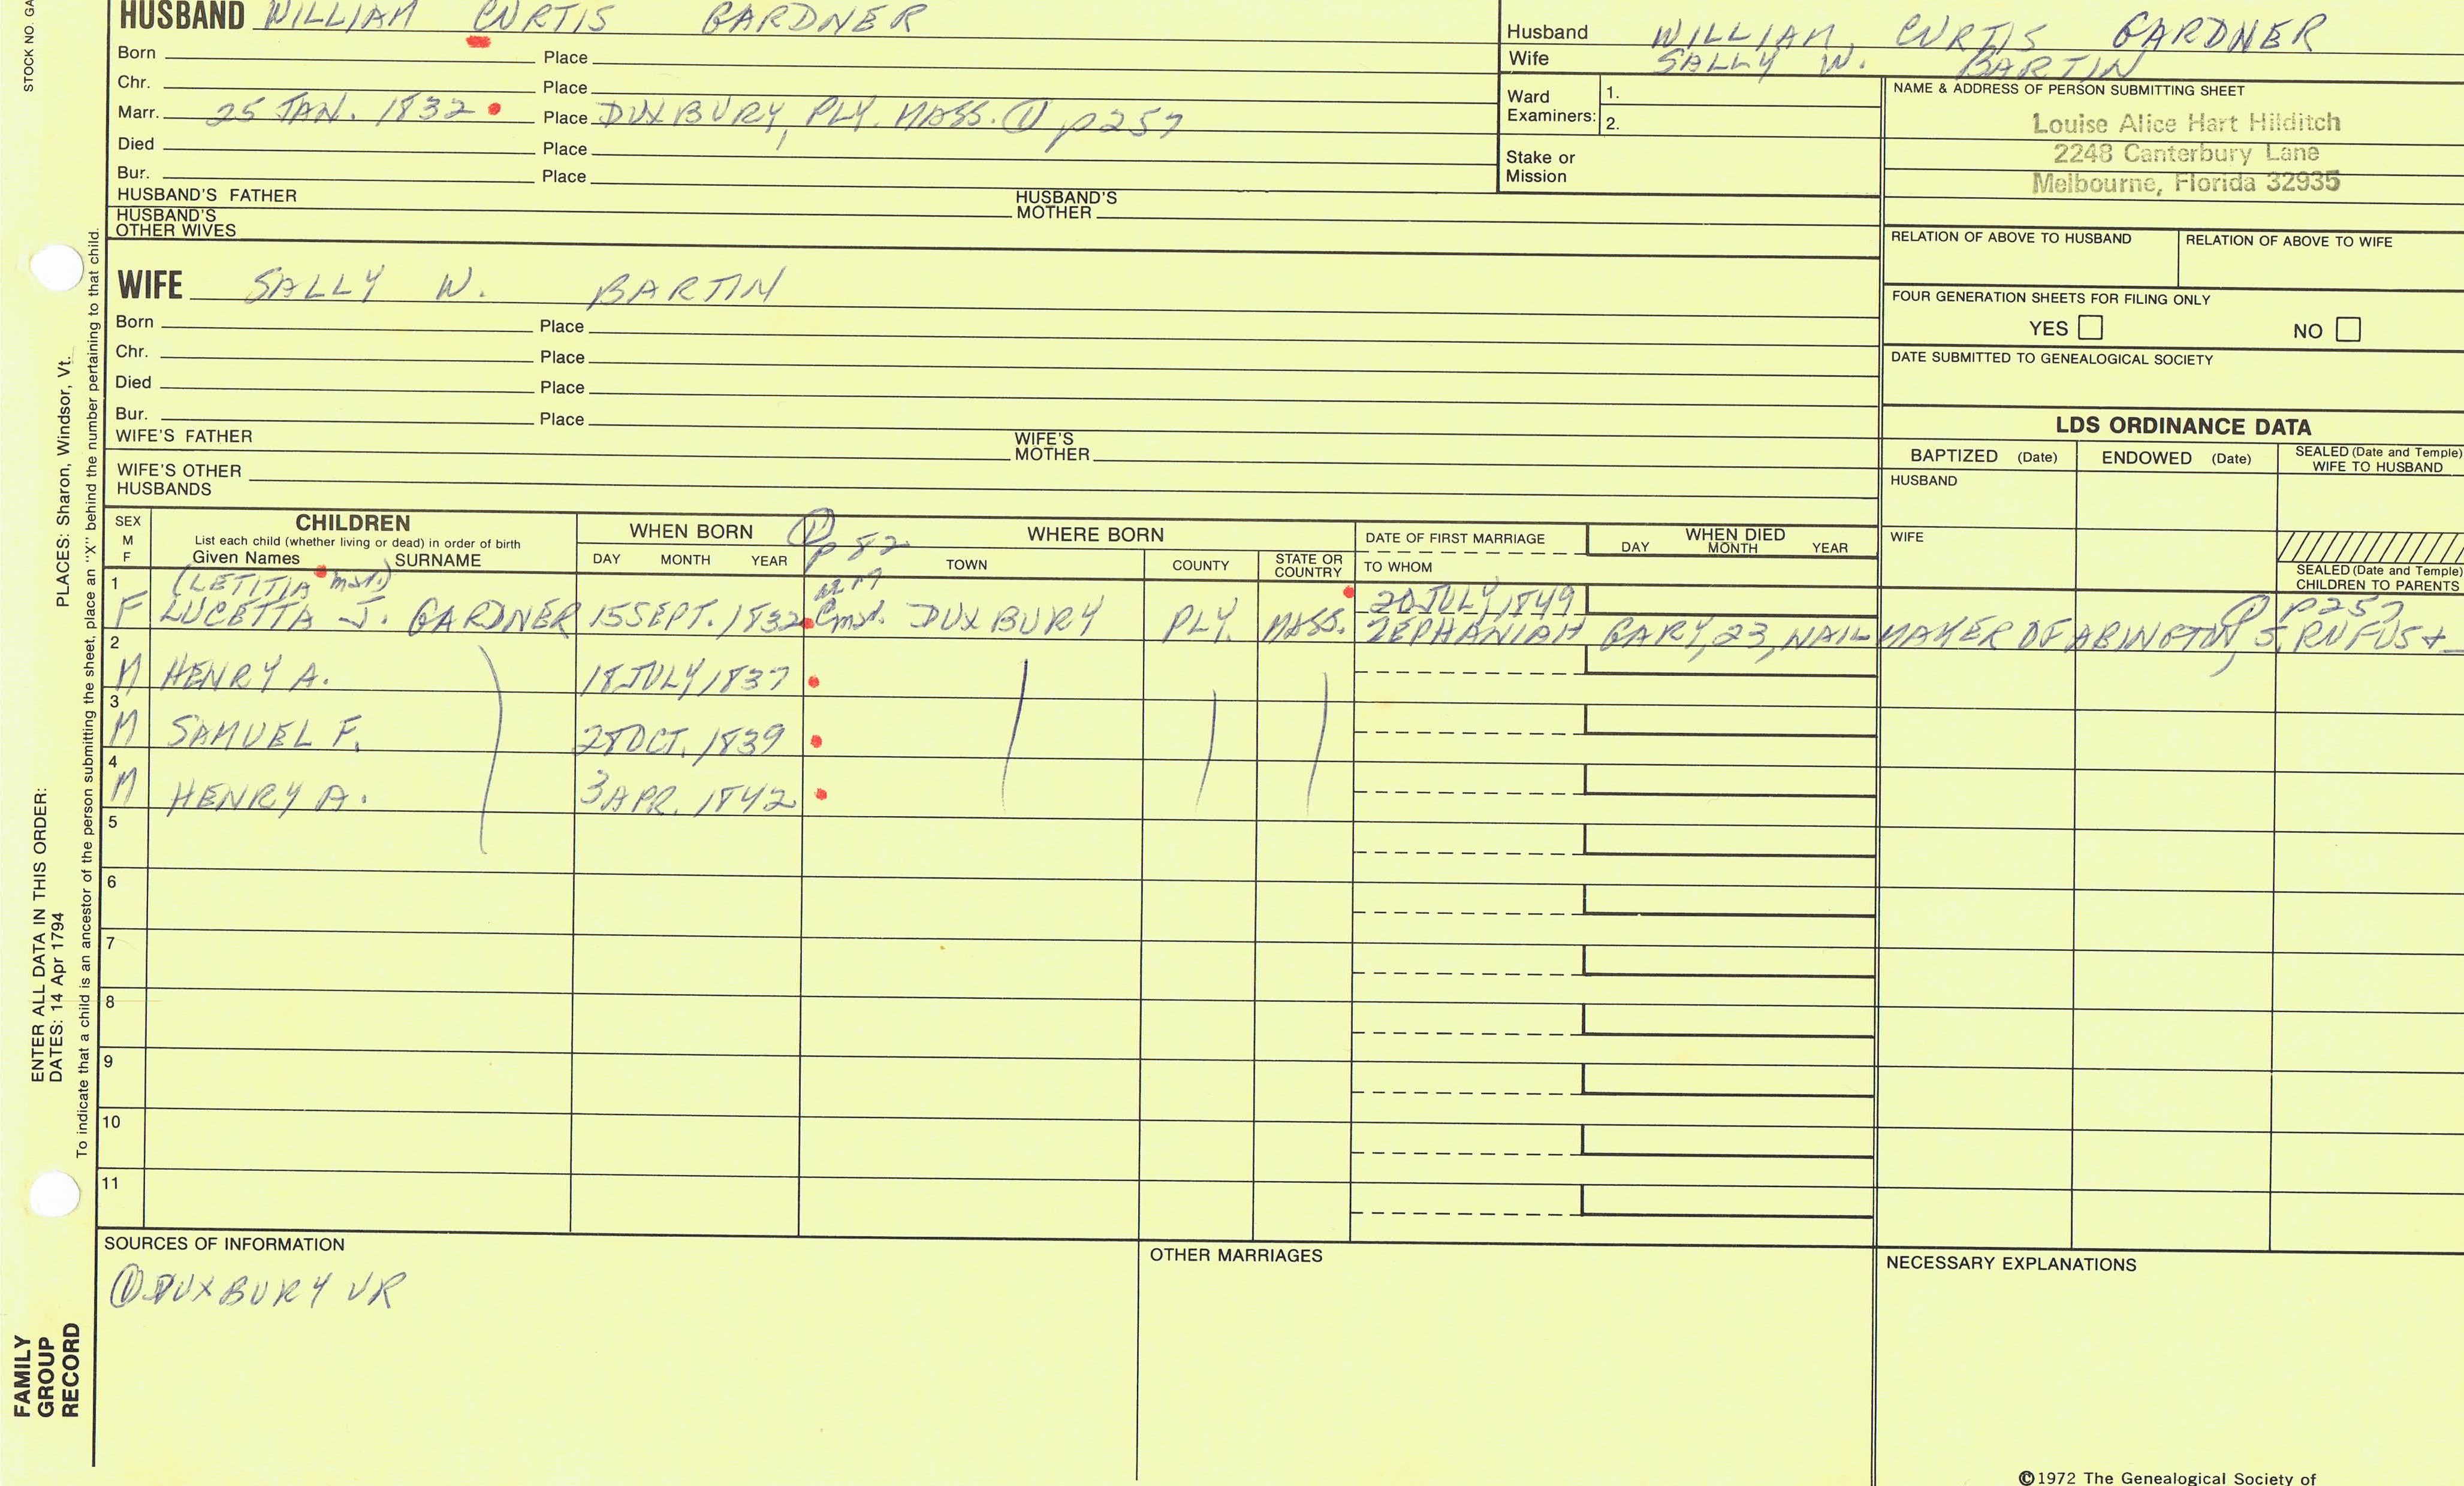 STOCK NO. GA
HUSBAND WILLIAM CURTIS GARDNER
Born Place
Chr. Place
Marr. 25 JAN. 1832 Place DUXBURY, PLY. MASS. ① p257
Died Place
Bur. Place
HUSBAND'S FATHER HUSBAND'S MOTHER
HUSBAND'S OTHER WIVES
Husband WILLIAM CURTIS GARDNER
Wife SALLY W. BARTIN
Ward Examiners: 1.
2.
Stake or Mission
NAME & ADDRESS OF PERSON SUBMITTING SHEET
Louise Alice Hart Hilditch
2248 Canterbury Lane
Melbourne, Florida 32935
RELATION OF ABOVE TO HUSBAND RELATION OF ABOVE TO WIFE
FOUR GENERATION SHEETS FOR FILING ONLY
YES NO
DATE SUBMITTED TO GENEALOGICAL SOCIETY
WIFE SALLY W. BARTIN
Born Place
Chr. Place
Died Place
Bur. Place
WIFE'S FATHER WIFE'S MOTHER
WIFE'S OTHER HUSBANDS
LDS ORDINANCE DATA
BAPTIZED (Date) ENDOWED (Date) SEALED (Date and Temple) WIFE TO HUSBAND
HUSBAND
WIFE
SEALED (Date and Temple) CHILDREN TO PARENTS
SEX M F
CHILDREN
List each child (whether living or dead) in order of birth
Given Names SURNAME
WHEN BORN
DAY MONTH YEAR
① p 82
WHERE BORN
TOWN COUNTY STATE OR COUNTRY
DATE OF FIRST MARRIAGE
TO WHOM
WHEN DIED
DAY MONTH YEAR
(LETITIA md.) 20 JULY, 1849 ① p257
1 F LUCETTA J. GARDNER 15 SEPT. 1832 DUXBURY PLY. MASS. ZEPHANIAH GARY, 23, NAIL MAKER OF ABINGTON, S. RUFUS +
2 M HENRY A. 18 JULY 1837
3 M SAMUEL F. 28 OCT. 1839
4 M HENRY A. 3 APR. 1842
5
6
7
8
9
10
11
SOURCES OF INFORMATION
① DUXBURY VR
OTHER MARRIAGES
NECESSARY EXPLANATIONS
©1972 The Genealogical Society of
FAMILY GROUP RECORD
ENTER ALL DATA IN THIS ORDER:
DATES: 14 Apr 1794
PLACES: Sharon, Windsor, Vt.
To indicate that a child is an ancestor of the person submitting the sheet, place an "X" behind the number pertaining to that child.